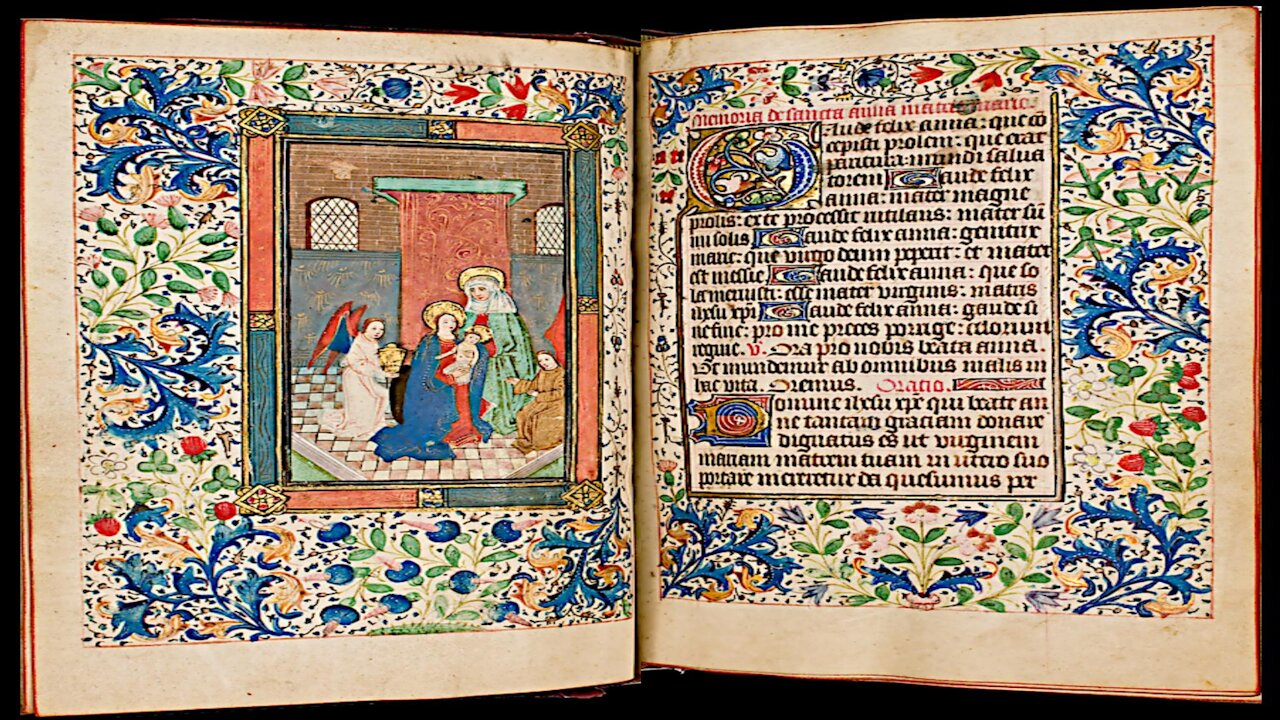 Memoria de sancta anna
Gaude felix anna: que co
cepisti prolem: que erat
paritura: mundi salua
torem Gaude felix
anna: mater magne
prolis: ex te processit rutilans: mater su
mi solis Gaude felix anna: genitrix
marie: que virgo deum peperit: et mater
est messie Gaude felix anna: que so
la meruisti: esse mater virginis: matris
ihesu xpi Gaude felix anna: gaude si
ne fine: pro me preces porrige: celorum
regine. v. Ora pro nobis beata anna
Ut mundemur ab omnibus malis in
hac vita. Oremus. Oratio.
Domine ihesu xpe qui beate an
ne tantam graciam donare
dignatus es ut virginem
mariam matrem tuam in utero suo
portare meretur da quesumus pre